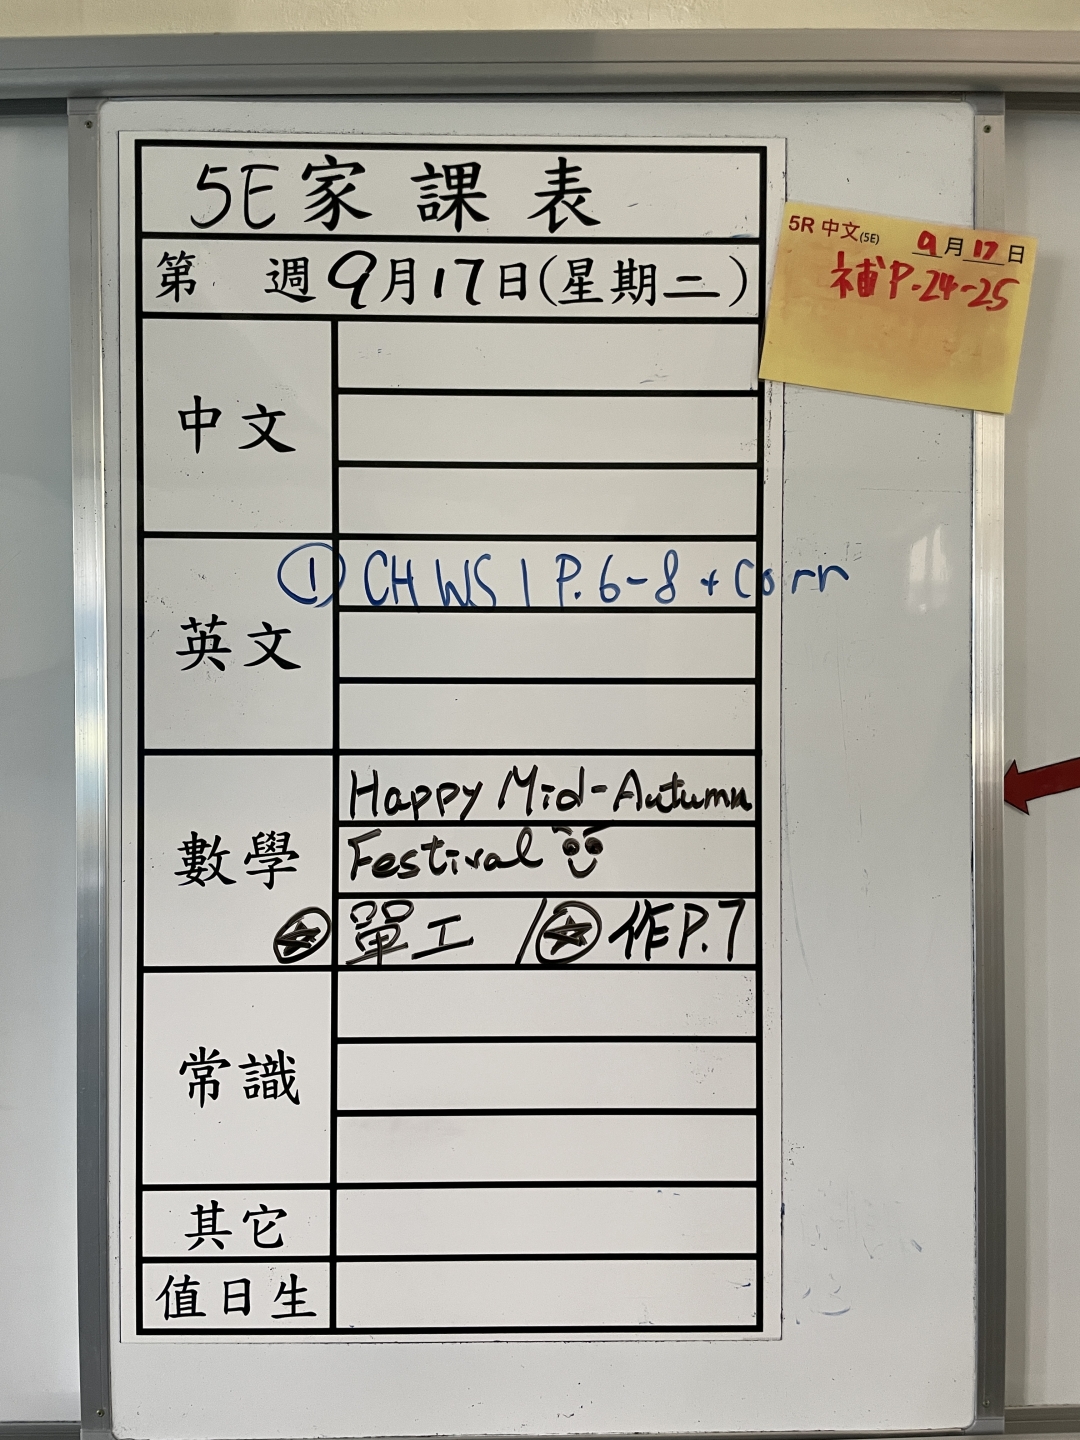 5E家課表
第 週9月17日(星期二)
中文
英文
① CH WS 1 P.6-8 + Corr
數學
Happy Mid-Autumn
Festival
單工 / 作P.7
常識
其它
值日生
5R 中文(5E) 9月17日
補P.24-25